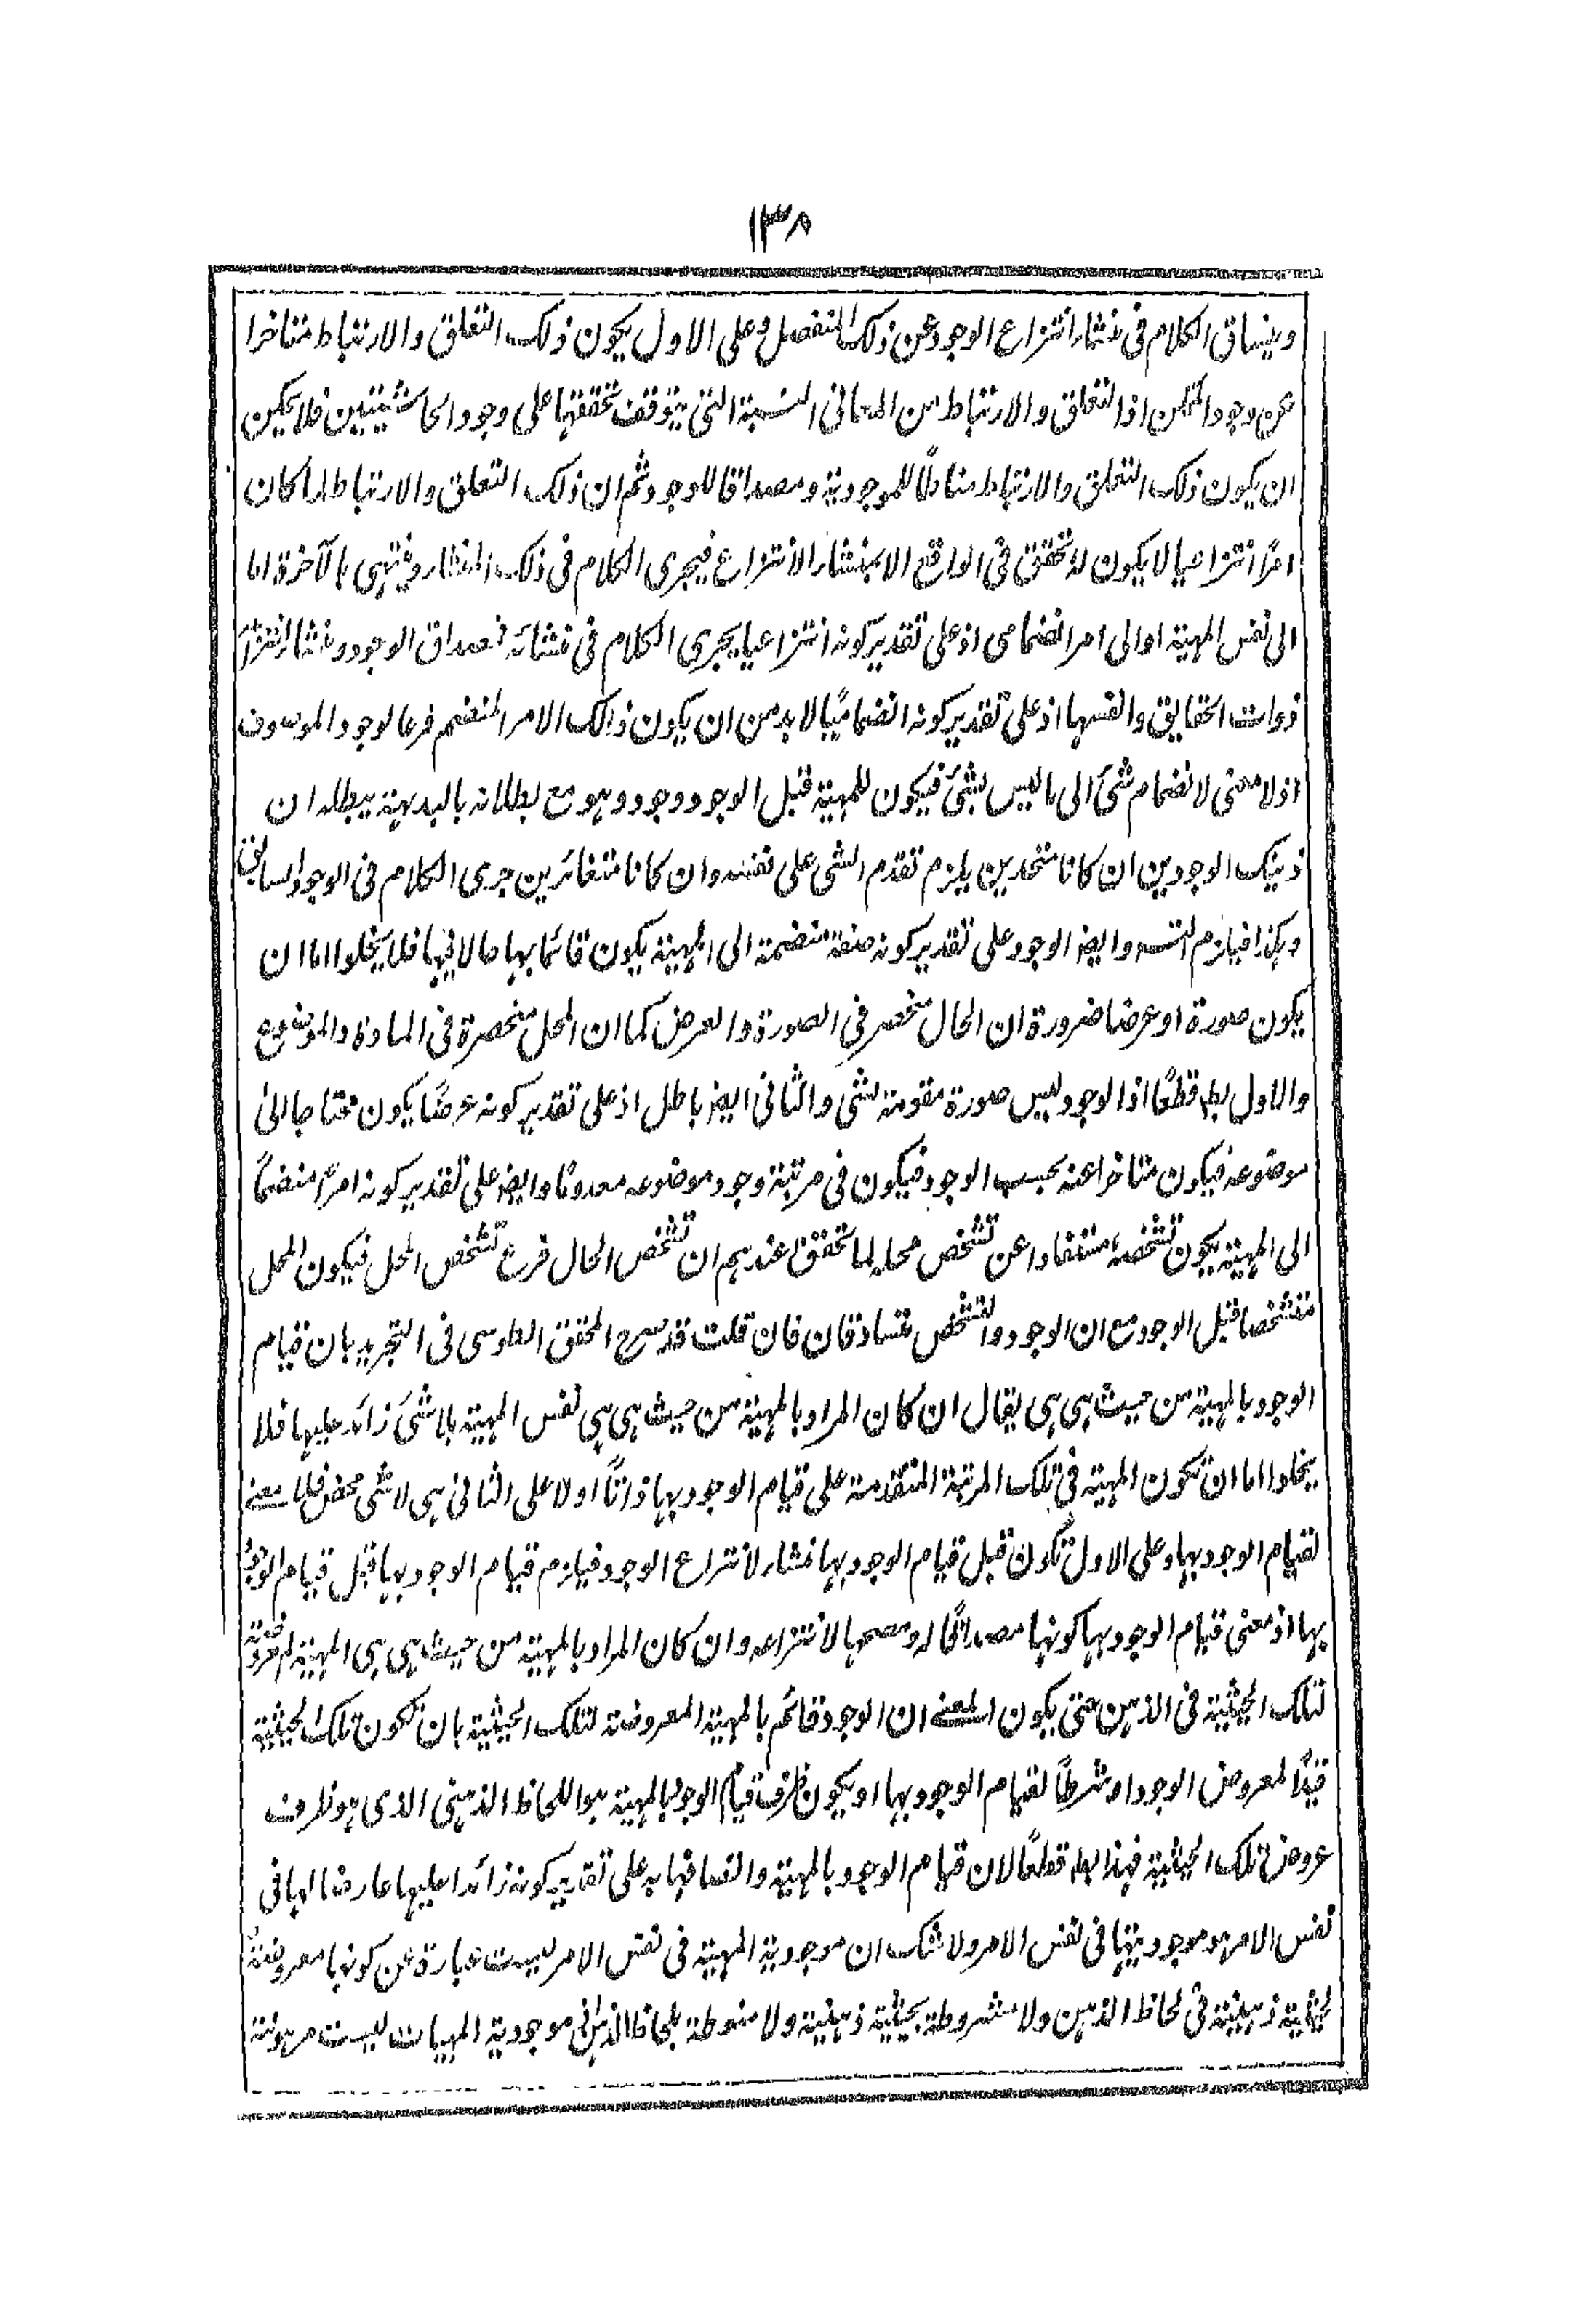 ١٣٨
وينساق الكلام فى منشاء انتزاع الوجود عن ذلك المنفصل وعلى الاول يكون ذلك التعلق والارتباط متاخرا
عن وجود الممكن اذ التعلق والارتباط من المعانى النسبة التى يتوقف تحققها على وجود الحاشيتين فلا يمكن
ان يكون ذلك التعلق والارتباط مناطًا للموجودية ومصداقا للوجود ثم ان ذلك التعلق والارتباط لما كان
امرًا انتزاعيا لا يكون له تحقق فى الواقع الا بمنشاء الانتزاع فيجرى الكلام فى ذلك المنشاء وينتهى بالآخرة اما
الى نفس المهية او الى امر انضمامى اذ على تقدير كونه انتزاعيا يجرى الكلام فى منشائه فمصداق الوجود ومنشاء انتزاعه
ذوات الحقايق وانفسها اذ على تقدير كونه انضماميًا لا بد من ان يكون ذلك الامر المنضم فرعا لوجود الموصوف
اذ لا معنى لانضمام شئ الى ما ليس بشئ فيكون للمهية قبل الوجود وجود وهو مع بطلانه بالبديهة يبطله ان
ذينك الوجودين ان كانا متحدين يلزم تقدم الشى على نفسه وان كانا متغائرين جرى الكلام فى الوجود السابق
وهكذا فيلزم التسـ وايضـ الوجود على تقدير كونه صفة منضمة الى المهية يكون قائما بها حالا فيها فلا يخلوا اما ان
يكون صورة او عرضا ضرورة ان الحال منحصر فى الصورة والعرض كما ان المحل منحصرة فى المادة والموضوع
والاول بطـ قطعًا اذ الوجود ليس صورة مقومة لشى والثانى ايضـ باطل اذ على تقدير كونه عرضًا يكون محتاجا الى
موضوعه فيكون متاخرا عنه بحسب الوجود فيكون فى مرتبة وجود موضوعه معدومًا وايضـ على تقدير كونه امرًا منضمًا
الى المهية يكون تشخصه مستفادا عن تشخص محله لما تحقق عندهم ان تشخص الحال فرع تشخص المحل فيكون المحل
متشخصا قبل الوجود مع ان الوجود والتشخص متساوقان فان قلت قد صرح المحقق الطوسى فى التجريد بان قيام
الوجود بالمهية من حيث هى هى يقال ان كان المراد بالمهية من حيث هى هى نفس المهية بلا شئ زائد عليها فلا
يخلوا اما ان تكون المهية فى تلك المرتبة المتقدمة على قيام الوجود بها ذاتًا او لا على الثانى هى لا شى محض فلا معنى
لقيام الوجود بها وعلى الاول تكون قبل قيام الوجود بها منشاء لانتزاع الوجود فيلزم قيام الوجود بها قبل قيام الوجود
بها اذ معنى قيام الوجود بها كونها مصداقًا له ومصححا لانتزاعه وان كان المراد بالمهية من حيث هى هى المهية المعروضة
لتلك الحيثية فى الذهن حتى يكون المعنى ان الوجود قائم بالمهية المعروضة لتلك الحيثية بان تكون تلك الحيثية
قيدًا لمعروض الوجود او شرطًا لقيام الوجود بها او يكون ظرف قيام الوجود بالمهية هو اللحاظ الذهنى الذى هو ظرف
عروض تلك الحيثية فهذا بطـ قطعًا لان قيام الوجود بالمهية واتصافها به على تقدير كونه زائدا عليها عارضا لها فى
نفس الامر هو موجوديتها فى نفس الامر ولا شك ان موجودية المهية فى نفس الامر ليست عبارة عن كونها معروضة
لحيثية ذهنية فى لحاظ الذهن ولا مشروطة بحيثية ذهنية ولا منوطة بلحاظ الذهن موجودية المهيات ليست مرهونة